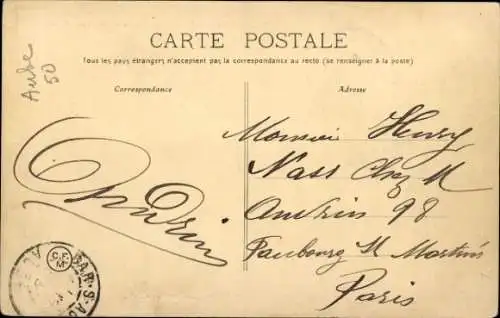 CARTE POSTALE
Tous les pays étrangers n'acceptent pas la correspondance au recto (se renseigner à la poste)
Aube
50
Correspondance
Adresse
Monsieur Henry
Nass Chez M
Andrin 98
Faubourg St Martin
Paris
Andrin
BAR-S-AU